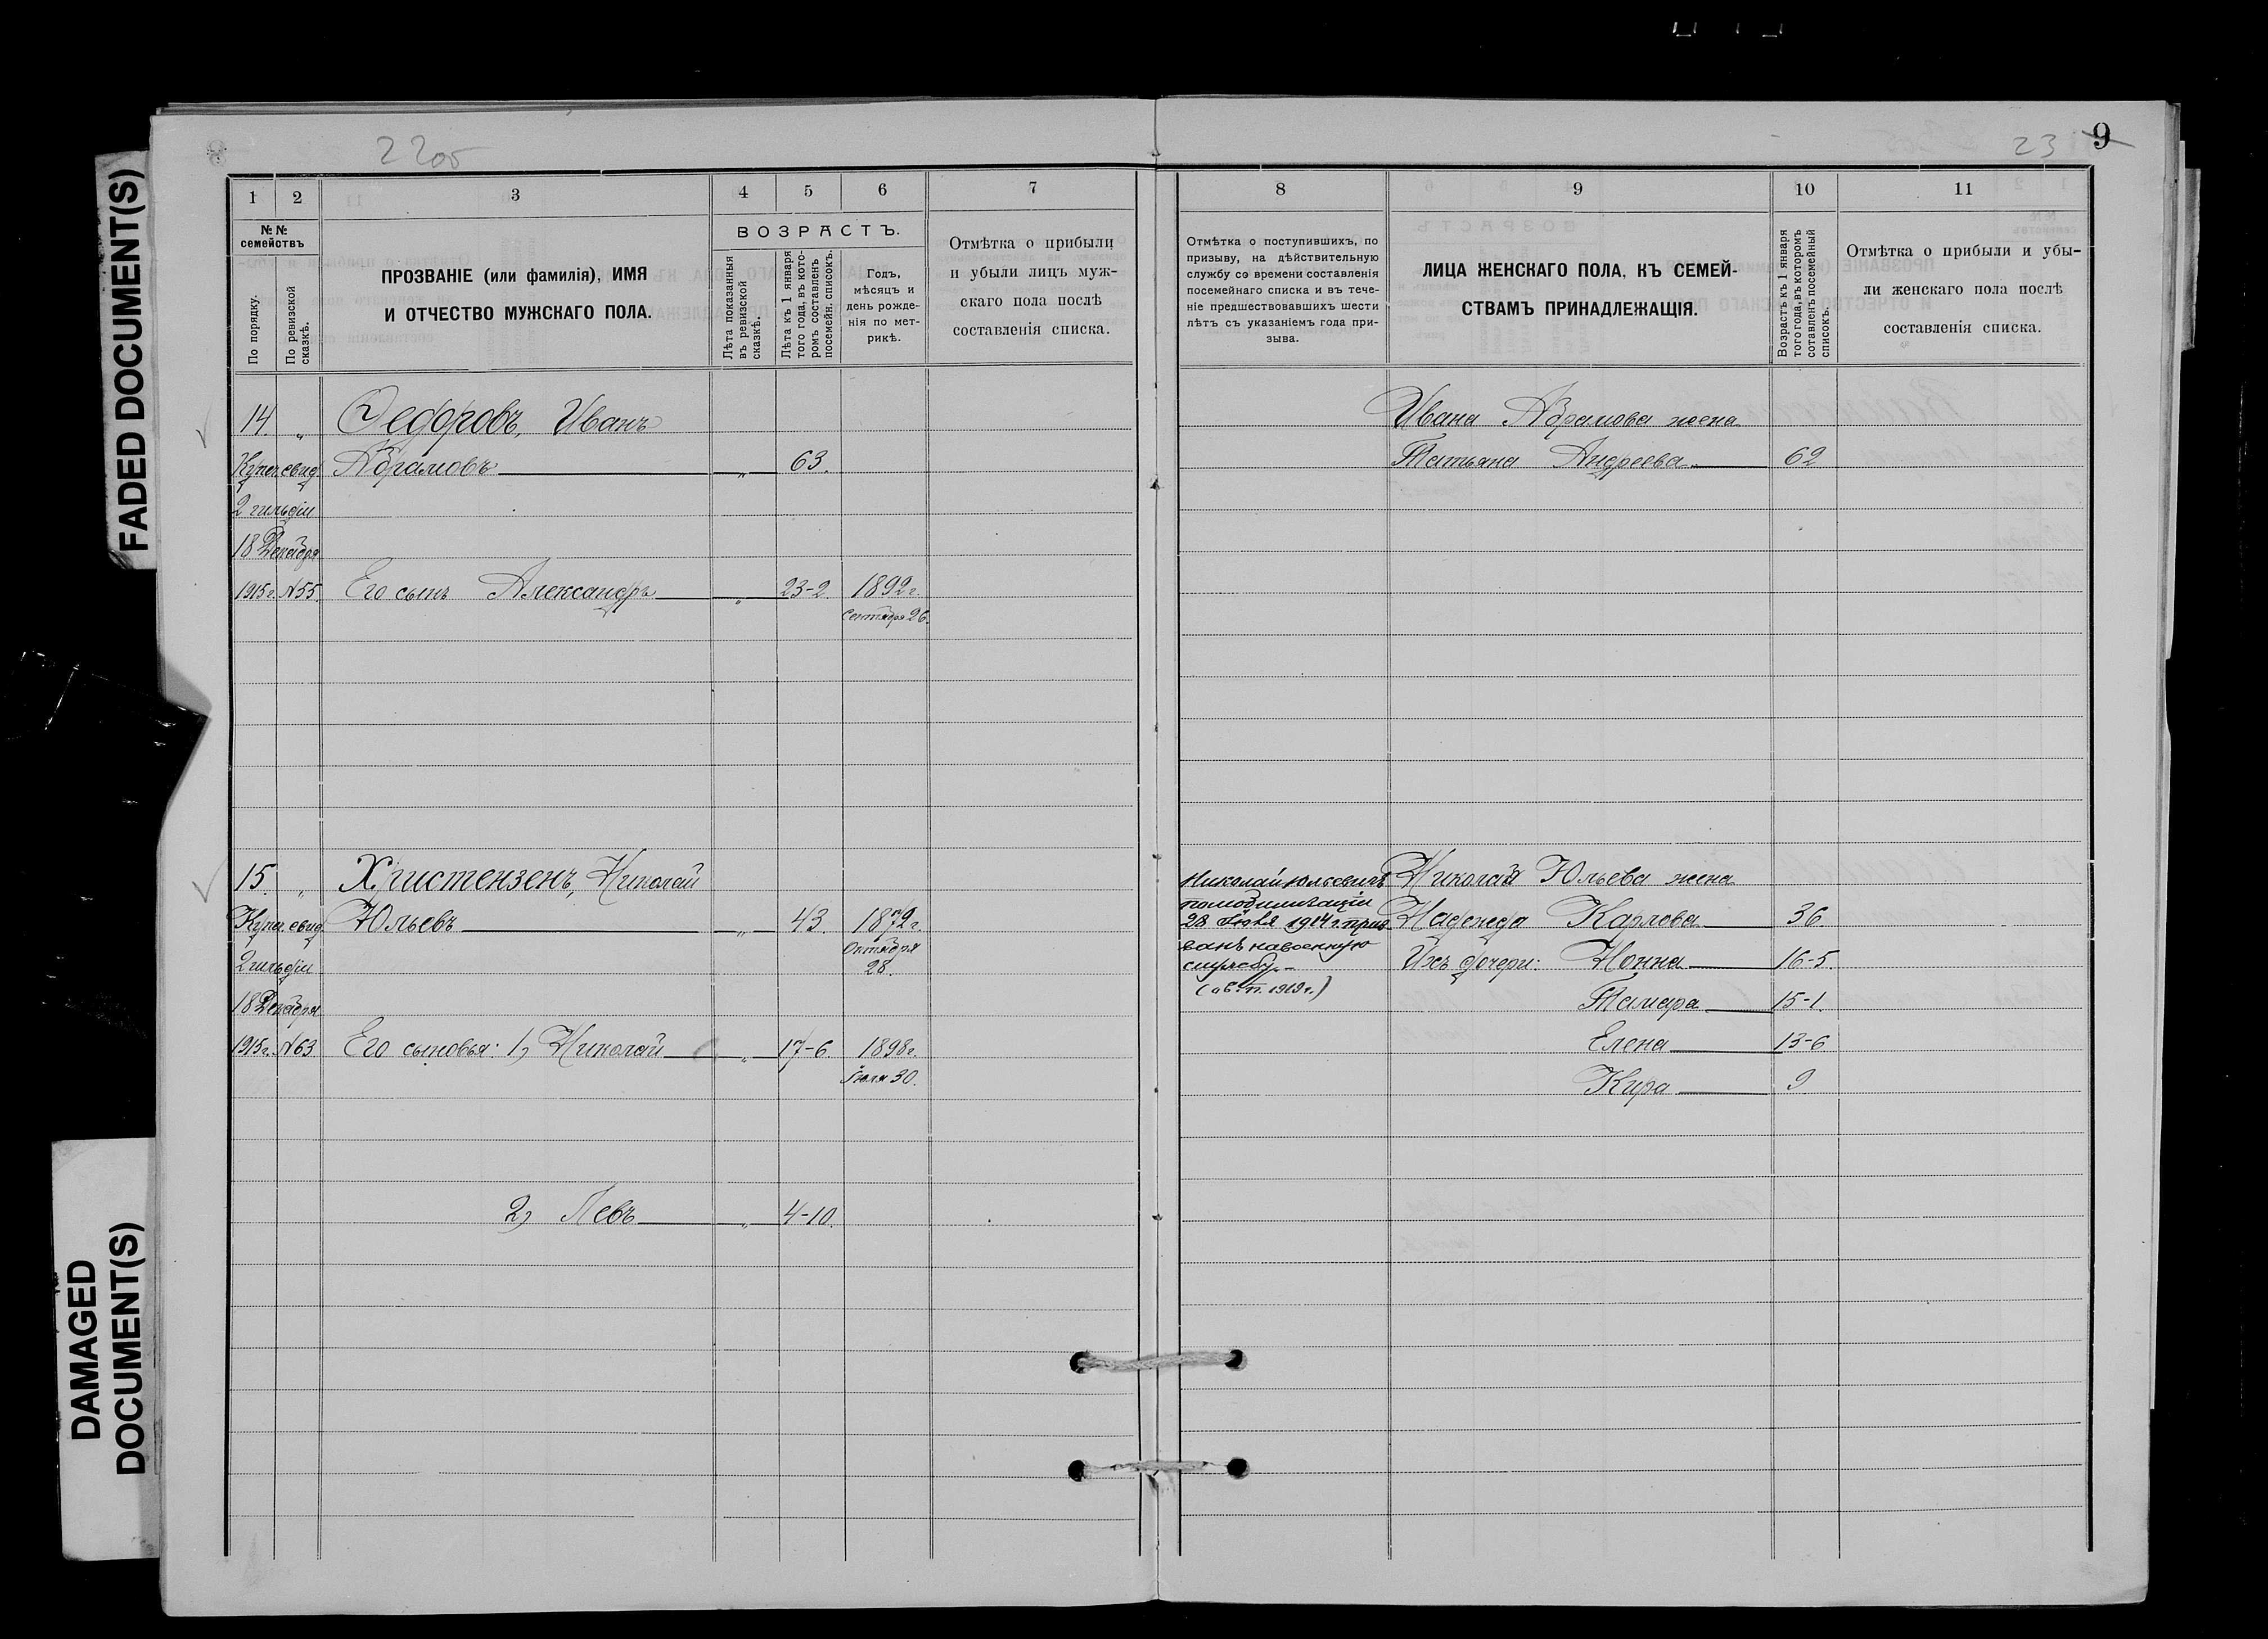 FADED DOCUMENT(S)
DAMAGED
DOCUMENT(S)
2205
23 9
1 2 3 4 5 6 7
№№
семействъ
По порядку.
По ревизской
сказкѣ.
ПРОЗВАНІЕ (или фамилія), ИМЯ
И ОТЧЕСТВО МУЖСКАГО ПОЛА.
ВОЗРАСТЪ.
Лѣта показанныя
въ ревизской
сказкѣ.
Лѣта къ 1 января
того года, въ кото-
ромъ составленъ
посемейн. списокъ.
Годъ,
мѣсяцъ и
день рожде-
нія по мет-
рикѣ.
Отмѣтка о прибыли
и убыли лицъ муж-
скаго пола послѣ
составленія списка.
14. „ Ѳедоровъ, Иванъ
Купеч. свид. Абрамовъ „ 63.
2 гильдіи
18 Декабря
1915 г. №55. Его сынъ Александръ „ 23-2 1892 г.
Сентября 26.
15. „ Христензенъ, Николай
Купеч. свид. Юльевъ „ 43. 1872 г.
2 гильдіи Октября
28.
18 Декабря
1915 г. №63 Его сыновья: 1, Николай „ 17-6. 1898 г.
Іюля 30.
2, Левъ „ 4-10.
8 9 10 11
Отмѣтка о поступившихъ, по
призыву, на дѣйствительную
службу со времени составленія
посемейнаго списка и въ тече-
ніе предшествовавшихъ шести
лѣтъ съ указаніемъ года при-
зыва.
ЛИЦА ЖЕНСКАГО ПОЛА, КЪ СЕМЕЙ-
СТВАМЪ ПРИНАДЛЕЖАЩІЯ.
Возрастъ къ 1 января
того года, въ которомъ
сотавленъ посемейный
списокъ.
Отмѣтка о прибыли и убы-
ли женскаго пола послѣ
составленія списка.
Ивана Абрамова жена
Татьяна Андреева 62
Николай Юльевичъ
по мобилизаціи
28 Іюля 1914 г. приз
ванъ на военную
службу.-
Николая Юльева жена
Надежда Карлова 36.
Ихъ дочери: Нонна 16-5.
Тамара 15-1.
Елена 13-6
Кира 9